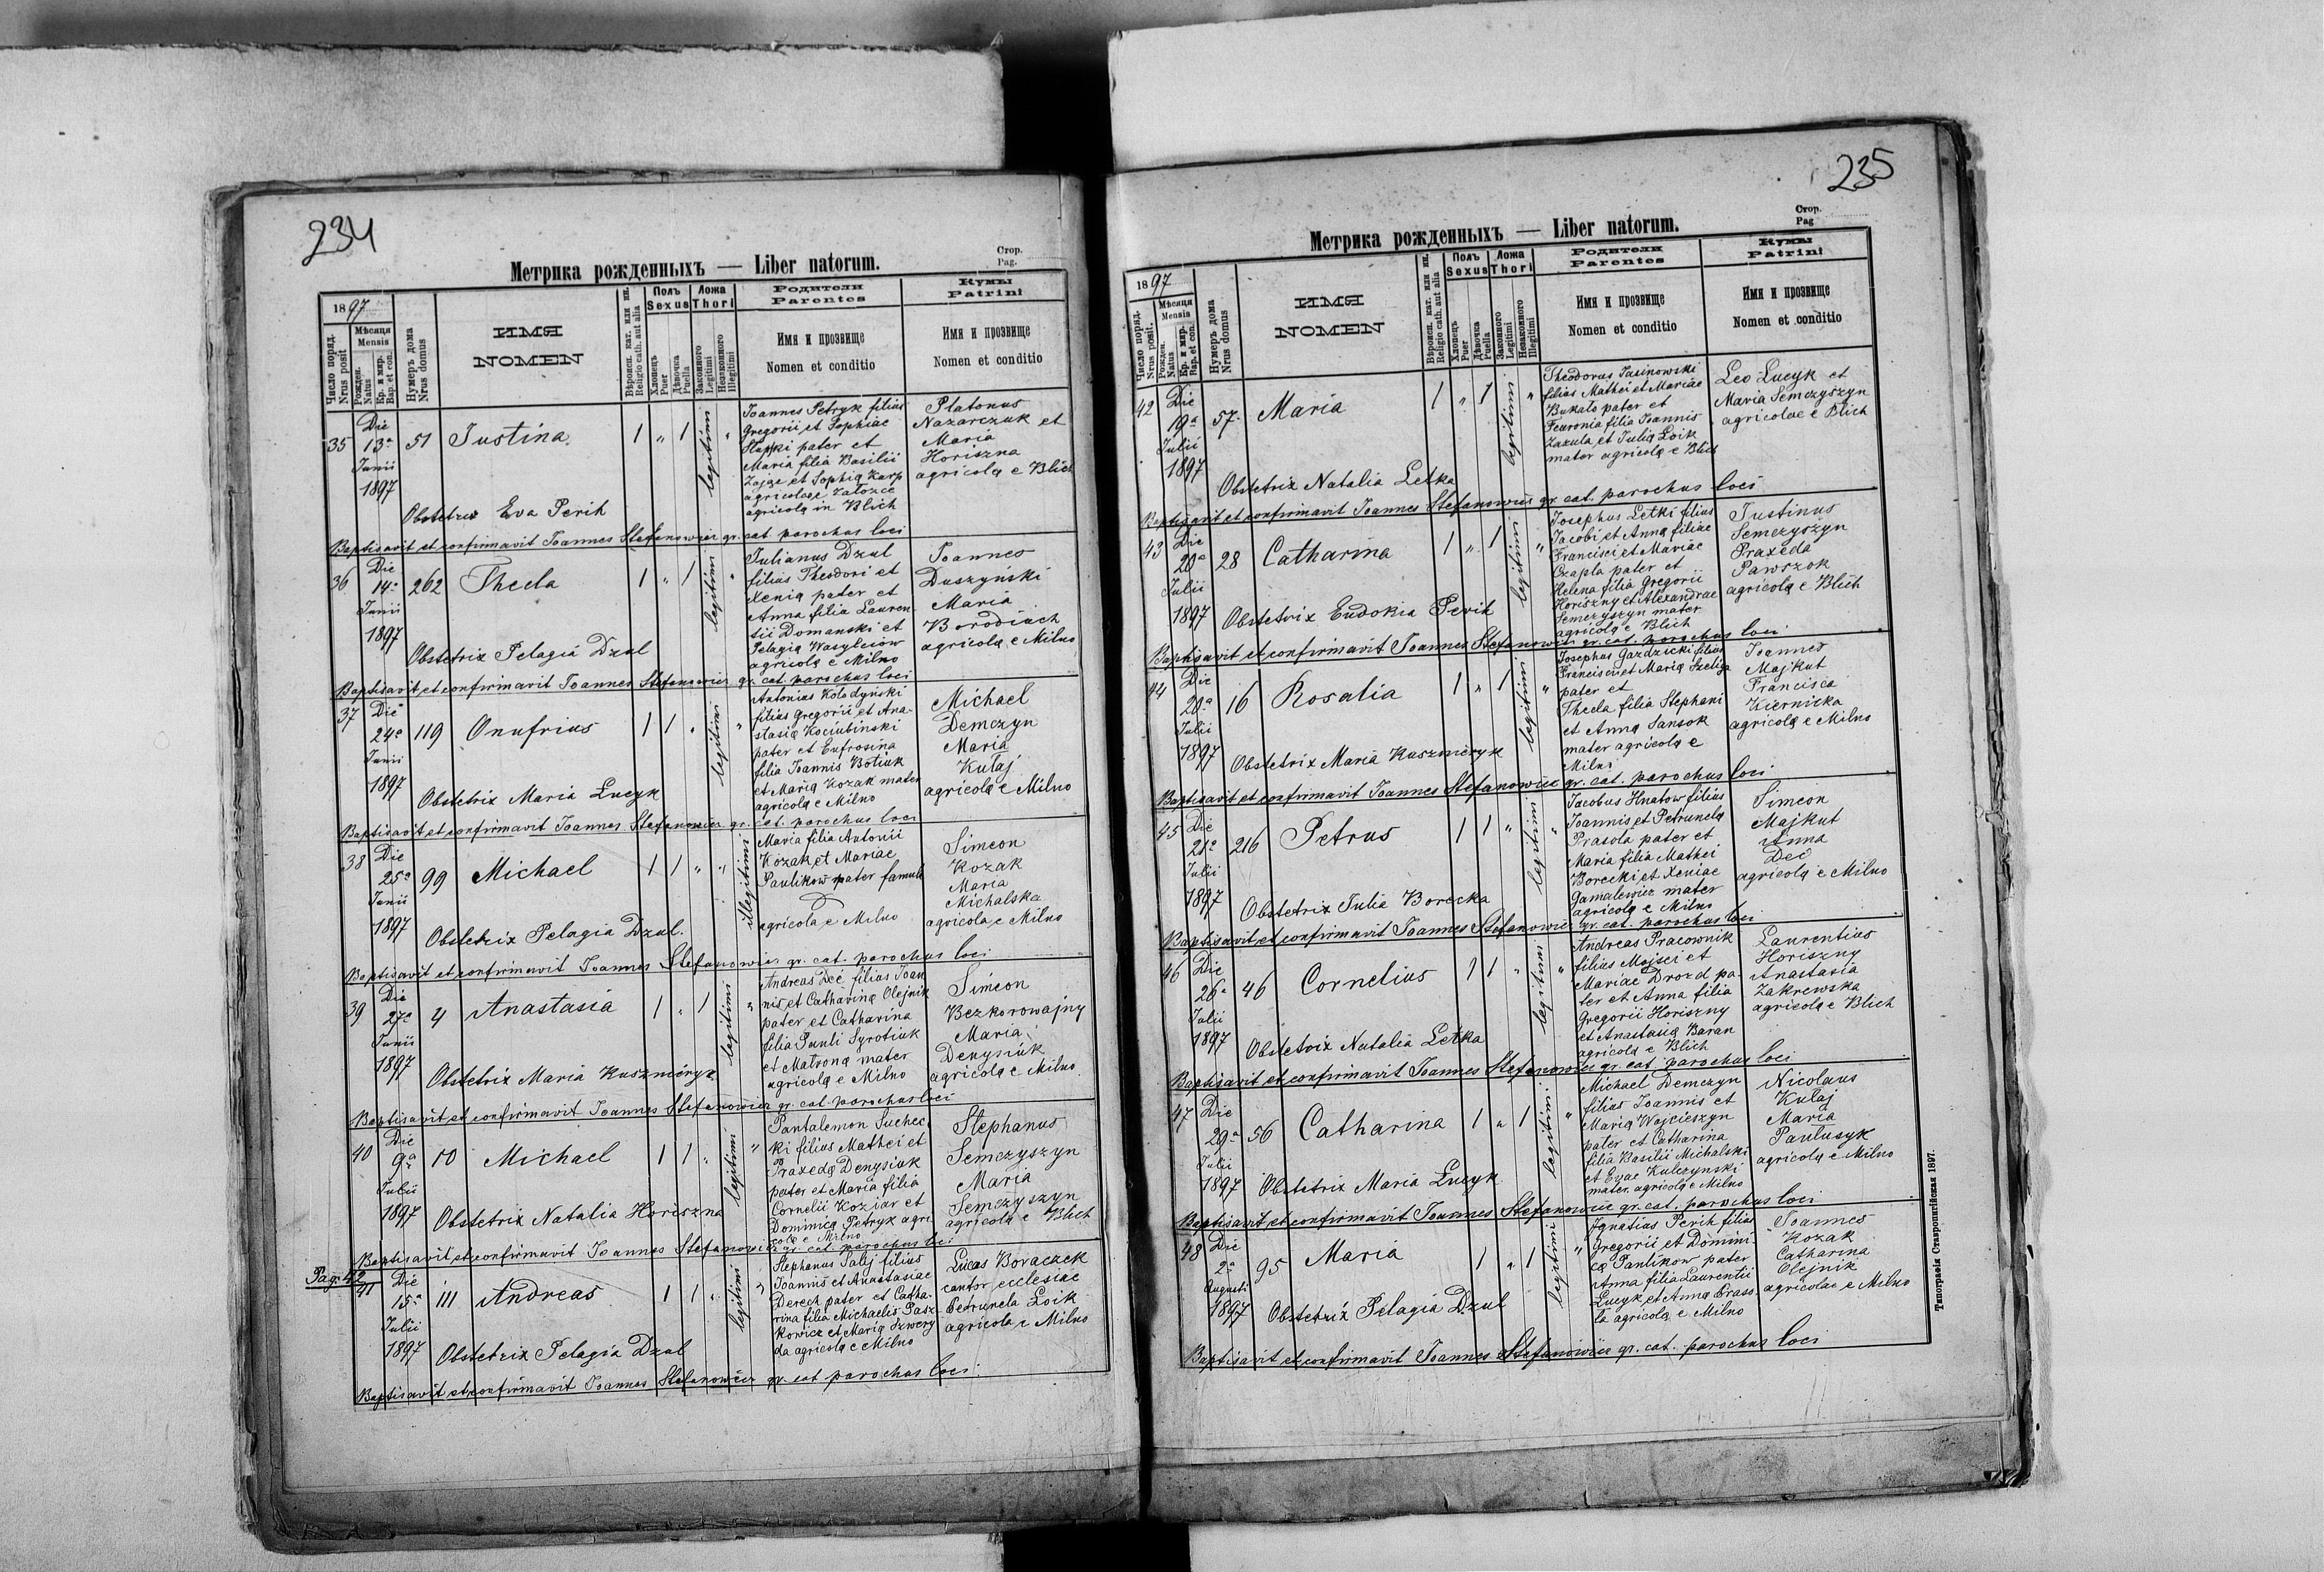 234
Метрика рожденныхъ — Liber natorum.
Стор.
Pag.
1897
Число поряд.
Nrus posit
Мѣсяця
Mensis
Рожден.
Natus
Кр. и мѵр.
Bap. et con.
Нумеръ дома
Nrus domus
ИМЯ
NOMEN
Вѣроисп. кат. или ин.
Religio cath. aut alia
Полъ
Sexus
Хлопець
Puer
Дѣвочка
Puella
Ложа
Thori
Законного
Legitimi
Незаконного
Illegitimi
Родители
Parentes
Имя и прозвище
Nomen et conditio
Кумы
Patrini
Имя и прозвище
Nomen et conditio
35
Die
13ª
Junii
1897
51
Justina
1 " 1
legitimi
"
Joannes Petryk filius
Gregorii et Sophiae
pater et
Maria filia Basilii
Zając et Sophia Karp
agricolae Załoźce
agricola in Blich
Platonus
Nazarczuk et
Maria
Horiszna
agricola e Blich
Obstetrix Eva Perih
Baptisavit et confirmavit Joannes Stefanowicz gr. cat. parochus loci
36
Die
14ª
Junii
1897
262
Thecla
1 " 1
legitimi
"
Julianus Dzul
filius Theodori et
Xenia pater et
Anna filia Lauren
tii Domanski et
Pelagia Wasylciow
agricola e Milno
Joannes
Duszyński
Maria
Borodiuch
agricola e Milno
Obstetrix Pelagia Dzul
Baptisavit et confirmavit Joannes Stefanowicz gr. cat. parochus loci
37
Die
24ª
Junii
1897
119
Onufrius
1 1 "
legitimi
"
Antonius Kolodyński
filius Gregorii et Ana-
stasia Kociubinski
pater et Eufrosina
filia Joannis Botiuk
et Maria Kozak mater
agricola e Milno
Michael
Demczyn
Maria
Kułaj
agricola e Milno
Obstetrix Maria Lucyk
Baptisavit et confirmavit Joannes Stefanowicz gr. cat. parochus loci
38
Die
25ª
Junii
1897
99
Michael
1 1 " "
illegitimi
Maria filia Antonii
Kozak et Mariae
Paulikow pater famula
agricola e Milno
Simeon
Kozak
Maria
Michalska
agricola e Milno
Obstetrix Pelagia Dzul.
Baptisavit et confirmavit Joannes Stefanowicz gr. cat. parochus loci
39
Die
27ª
Junii
1897
4
Anastasia
1 " 1
legitimi
"
Andreas Deć filius Joan
nis et Catharina Olejnik
pater et Catharina
filia Pauli Syrotiuk
et Matrona mater
agricola e Milno
Simeon
Bezkorowajny
Maria
Denysiuk
agricola e Milno
Obstetrix Maria Kuszmiryk
Baptisavit et confirmavit Joannes Stefanowicz gr. cat. parochus loci
40
Die
9ª
Julii
1897
10
Michael
1 1 "
legitimi
"
Pantalemon Suchec
ki filius Mathei et
Praxeda Denysiuk
pater et Maria filia
Cornelii Koziar et
Dominica Petryk agri
cola e Milno
Stephanus
Semczyszyn
Maria
Semczyszyn
agricola e Blich
Obstetrix Natalia Horiszna
Baptisavit et confirmavit Joannes Stefanowicz gr. cat. parochus loci
Pag: 42
41
Die
15ª
Julii
1897
111
Andreas
1 1 "
legitimi
"
Stephanus Palij filius
Joannis et Anastasiae
Derech pater et Catha-
rina filia Michaelis Pasz
kowicz et Maria Szwery
da agricola e Milno
Lucas Boraczek
cantor ecclesiae
Petrunela Łoik
agricola e Milno
Obstetrix Pelagia Dzul
Baptisavit et confirmavit Joannes Stefanowicz gr. cat parochus loci
235
Метрика рожденныхъ — Liber natorum.
Стор.
Pag
1897
Число поряд.
Nrus posit.
Мѣсяця
Mensis
Рожден.
Natus
Кр. и мѵр.
Bap. et con.
Нумеръ дома
Nrus domus
ИМЯ
NOMEN
Вѣроисп. кат. или ин.
Religio cath. aut alia
Полъ
Sexus
Хлопець
Puer
Дѣвочка
Puella
Ложа
Thori
Законного
Legitimi
Незаконного
Illegitimi
Родители
Parentes
Имя и прозвище
Nomen et conditio
Кумы
Patrini
Имя и прозвище
Nomen et conditio
42
Die
19ª
Julii
1897
57
Maria
1 " 1
legitimi
"
Theodorus Jasinowski
filius Mathei et Mariae
Bukało pater et
Feuronia filia Joannis
Zazula et Julia Łoik
mater agricola e Blich
Leo Lucyk et
Maria Semczyszyn
agricolae e Blich
Obstetrix Natalia Letka
Baptisavit et confirmavit Joannes Stefanowicz gr. cat. parochus loci
43
Die
20ª
Julii
1897
28
Catharina
1 " 1
legitimi
"
Josephus Letki filius
Jacobi et Anna filiae
Francisci et Mariae
Czapla pater et
Helena filia Gregorii
Horiszny et Alexandrae
Semczyszyn mater
agricola e Blich
Justinus
Semczyszyn
Praxeda
Pawszok
agricola e Blich
Obstetrix Eudokia Perih
Baptisavit et confirmavit Joannes Stefanowicz gr. cat. parochus loci
44
Die
20ª
Julii
1897
16
Rosalia
1 " 1
legitimi
"
Josephus Gazdzicki filius
Francisci et Maria Szeliga
pater et
Thecla filia Stephani
et Anna Sansok
mater agricola e
Milno
Joannes
Majkut
Francisca
Kiernicka
agricola e Milno
Obstetrix Maria Kuszmiryk
Baptisavit et confirmavit Joannes Stefanowicz gr. cat. parochus loci
45
Die
21ª
Julii
1897
216
Petrus
1 1 "
legitimi
"
Jacobus Hnatow filius
Joannis et Petrunela
Prasoła pater et
Maria filia Mathei
Borecki et Xeniae
Gamalewicz mater
agricola e Milno
Simeon
Majkut
Anna
Deć
agricola e Milno
Obstetrix Julia Borecka
Baptisavit et confirmavit Joannes Stefanowicz gr. cat. parochus loci
46
Die
26ª
Julii
1897
46
Cornelius
1 1 "
legitimi
"
Andreas Pracownik
filius Mojsei et
Mariae Drozd pa-
ter et Anna filia
Gregorii Horiszny
et Anastasia Baran
agricola e Blich
Laurentius
Horiszny
Anastasia
Zakrewska
agricola e Blich
Obstetrix Natalia Letka
Baptisavit et confirmavit Joannes Stefanowicz gr. cat. parochus loci
47
Die
29ª
Julii
1897
56
Catharina
1 " 1
legitimi
"
Michael Demczyn
filius Joannis et
Maria Wojcieszyn
pater et Catharina
filia Basilii Michalski
et Evae Kulczynski
mater agricola e Milno
Nicolaus
Kułaj
Maria
Pautusyk
agricola e Milno
Obstetrix Maria Lucyk
Baptisavit et confirmavit Joannes Stefanowicz gr. cat. parochus loci
48
Die
2ª
Augusti
1897
95
Maria
1 " 1
legitimi
"
Ignatius Perih filius
Gregorii et Domini
ca Paulikow pater
Anna filia Laurentii
Lucyk et Anna Prass
la agricola e Milno
Joannes
Kozak
Catharina
Olejnik
agricolae e Milno
Obstetrix Pelagia Dzul
Baptisavit et confirmavit Joannes Stefanowicz gr. cat. parochus loci
Типографія Ставропигійская 1897.